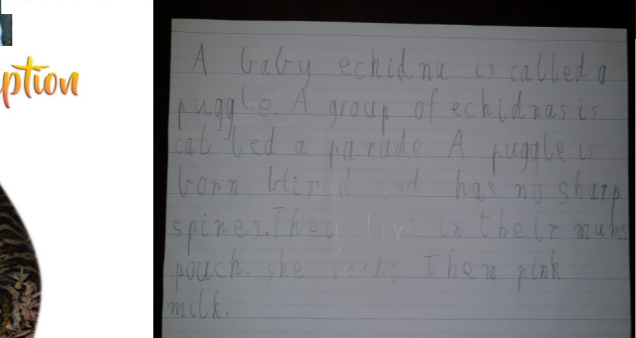 ption
A baby echidna is called a
puggle. A group of echidnas is
called a parade. A puggle is
born blind and has no sharp
spines. They live in their mums
pouch. she feeds them pink
milk.